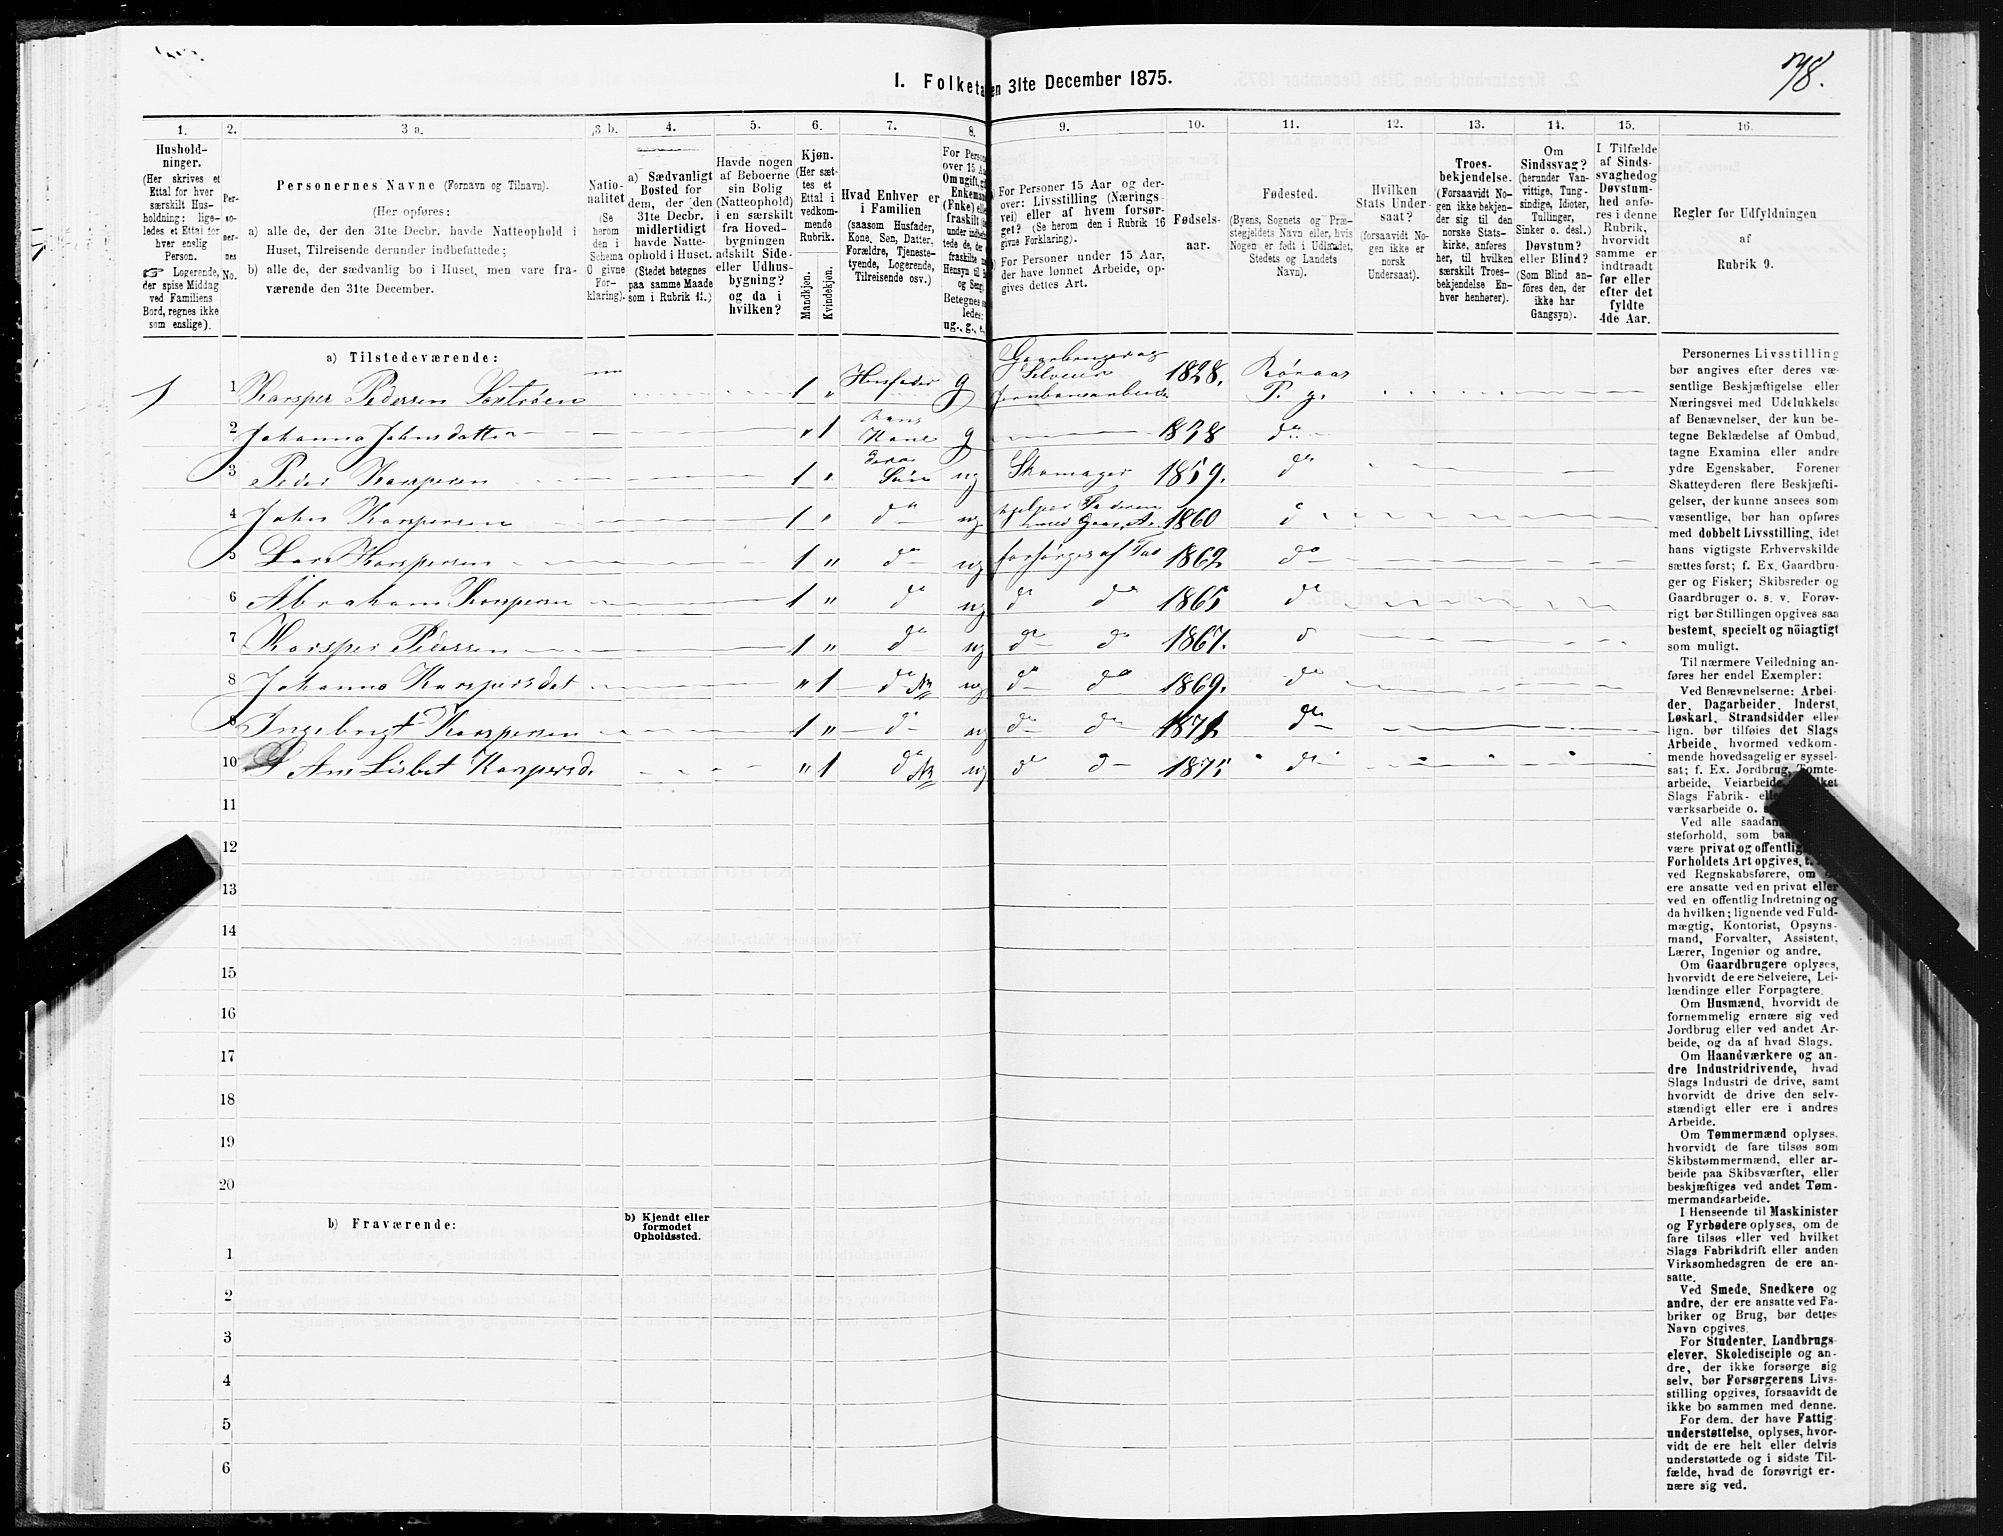 78.
I. Folketa en 31te December 1875.
1. 2. 3 a. 3 b. 4. 5. 6. 7. 8. 9. 10. 11. 12. 13. 14. 15. 16.
Hushold-
ninger.
(Her skrives et
Ettal for hver
særskilt Hus-
holdning; lige-
ledes et Ettal for
hver enslig
Person.
☞ Logerende,
der spise Middag
ved Familiens
Bord, regnes ikke
som enslige).
Per-
so-
ner-
nes
No.
Personernes Navne (Fornavn og Tilnavn).
(Her opføres:
a) alle de, der den 31te Decbr. havde Natteophold i
Huset, Tilreisende derunder indbefattede;
b) alle de, der sædvanlig bo i Huset, men vare fra-
værende den 31te December.
Natio-
nalitet
(Se
herom
den i
Schema
O givne
For-
klaring).
a) Sædvanligt
Bosted for
dem, der den
31te Decbr.
midlertidigt
havde Natte-
ophold i Huset.
(Stedet betegnes
paa samme Maade
som i Rubrik 11.)
Havde nogen
af Beboerne
sin Bolig
(Natteophold)
i en særskilt
fra Hoved-
bygningen
adskilt Side-
eller Udhus-
bygning?
og da i
hvilken?
Kjøn.
(Her sæt-
tes et
Ettal i
vedkom-
mende
Rubrik.
Mandkjøn.
Kvindekjøn.
Hvad Enhver er
i Familien
(saasom Husfader,
Kone, Søn, Datter,
Forældre, Tjeneste-
tyende, Logerende,
Tilreisende osv.)
For Person
over 15 Aa
Om ugift, g
Enkeman
(Enke) elle
fraskilt
og Seng)
Betegnes s
ledes:
ug., g., e.,
For Personer 15 Aar og der-
over: Livsstilling (Nærings
vei) eller af hvem forsør-
get? (Se herom den i Rubrik 16
givne Forklaring).
For Personer under 15 Aar,
der have lønnet Arbeide, op-
gives dettes Art.
Fødsels-
aar.
Fødested.
(Byens, Sognets og Præ-
stegjeldets Navn eller, hvis
Nogen er født i Udlandet,
Stedets og Landets
Navn).
Hvilken
Stats Under-
saat?
(forsaavidt No-
gen ikke er
norsk
Undersaat).
Troes-
bekjendelse.
(Forsaavidt No-
gen ikke bekjen-
der sig til den
norske Stats-
kirke, anføres
her, til hvilken
særskilt Troes-
bekjendelse En-
hver henhører).
Om
Sindssvag?
(herunder Van-
vittige, Tung-
sindige, Idioter,
Tullinger,
Sinker o. desl.)
Døvstum?
eller Blind?
(Som Blind an-
føres den, der
ikke har
Gangsyn).
I Tilfælde
af Sinds-
svaghed og
Døvstum-
hed anfø-
res i denne
Rubrik,
hvorvidt
samme er
indtraadt
før eller
efter det
fyldte
4de Aar.
Regler før Udfyldningen
af
Rubrik 9.
a) Tilstedeværende:
1 1 Karsper Pedersen 1 " Husfader g Gaarbruger og Selveier Jernbanearbeide 1828. Røraas P. g.
2 Johanna Johnsdatter " 1 hans Kone g 1838 do
3 Peder Karspersen 1 " deres Søn ug Skomager 1859. do
4 John Karspersen 1 " do ug hjelper Faderen med 1860 d
5 Lars Karspersen 1 " do ug forsørges af Fad 1862 do
6 Abraham Karspersen 1 " do ug do do 1865 do
7 Karsper Pedersen 1 " do ug do do 1867. d
8 Johanna Karspersdat " 1 do ug do do 1869. do
9 Ingebrigt Karspersen 1 " do ug do do do
10 Ane Lisbet Karspersd. " 1 do ug do do 1875 do
11
12
13
14
15
16
17
18
19
20
b) Fraværende:
b) Kjendt eller
formodet
Opholdssted.
1
2
3
4
5
6
Personernes Livsstilling
bør angives efter deres væ-
sentlige Beskjæftigelse eller
Næringsvei med Udelukkelse
af Benævnelser, der kun be-
tegne Beklædelse af Ombud,
tagne Examina eller andre
ydre Egenskaber. Forener
Skatteyderen flere Beskjæfti-
gelser, der kunne ansees som
væsentlige, bør han opføres
med dobbelt Livsstilling, idet
hans vigtigste Erhvervskilde
sættes først; f. Ex. Gaardbru-
ger og Fisker; Skibsreder og
Gaardbruger o. s. v. Forøv-
rigt bør Stillingen opgives saa
bestemt, specielt og nöiagtigt
som muligt.
Til nærmere Veiledning an-
føres her endel Exempler:
Ved Benævnelserne: Arbei-
der, Dagarbeider, Inderst,
Løskarl, Strandsidder eller
lign. bør tilføies det Slags
Arbeide, hvormed vedkom-
mende hovedsagelig er syssel-
sat; f. Ex. Jordbrug, Tomte-
arbeide, Veiarbeide,
Slags Fabrik-
værksarbeide o. s.
Ved alle saadan
steforhold, som
være privat og offentlig
Forholdets Art opgives, t.
ved Regnskabsførere, om
ere ansatte ved en privat eller
ved en offentlig Indretning og
da hvilken; lignende ved Fuld-
mægtig, Kontorist, Opsyns-
mand, Forvalter, Assistent,
Lærer, Ingeniør og andre.
Om Gaardbrugere oplyses,
hvorvidt de ere Selveiere, Lei-
lændinge eller Forpagtere.
Om Husmænd, hvorvidt de
fornemmelig ernære sig ved
Jordbrug eller ved andet Ar-
beide, og da af hvad Slags.
Om Haandværkere og an-
dre Industridrivende, hvad
Slags Industri de drive, samt
hvorvidt de drive den selv-
stændigt eller ere i andres
Arbeide.
Om Tømmermænd oplyses,
hvorvidt de fare tilsøs som
Skibstømmermænd, eller ar-
beide paa Skibsværfter, eller
beskjæftiges ved andet Tøm-
mermandsarbeide.
I Henseende til Maskinister
og Fyrbødere oplyses, om de
fare tilsøs eller ved hvilket
Slags Fabrikdrift eller anden
Virksomhedsgren de ere an-
satte.
Ved Smede, Snedkere og
andre, der ere ansatte ved Fa-
briker og Brug, bør dettes
Navn opgives.
For Studenter, Landbrugs-
elever, Skoledisciple og an-
dre, der ikke forsørge sig
selv, bør Forsørgerens Livs-
stilling opgives, forsaavidt de
ikke bo sammen med denne.
For dem, der have Fattig-
understøttelse, oplyses, hvor-
vidt de ere helt eller delvis
understøttede og i sidste Til-
fælde, hvad de forøvrigt er-
nære sig ved.